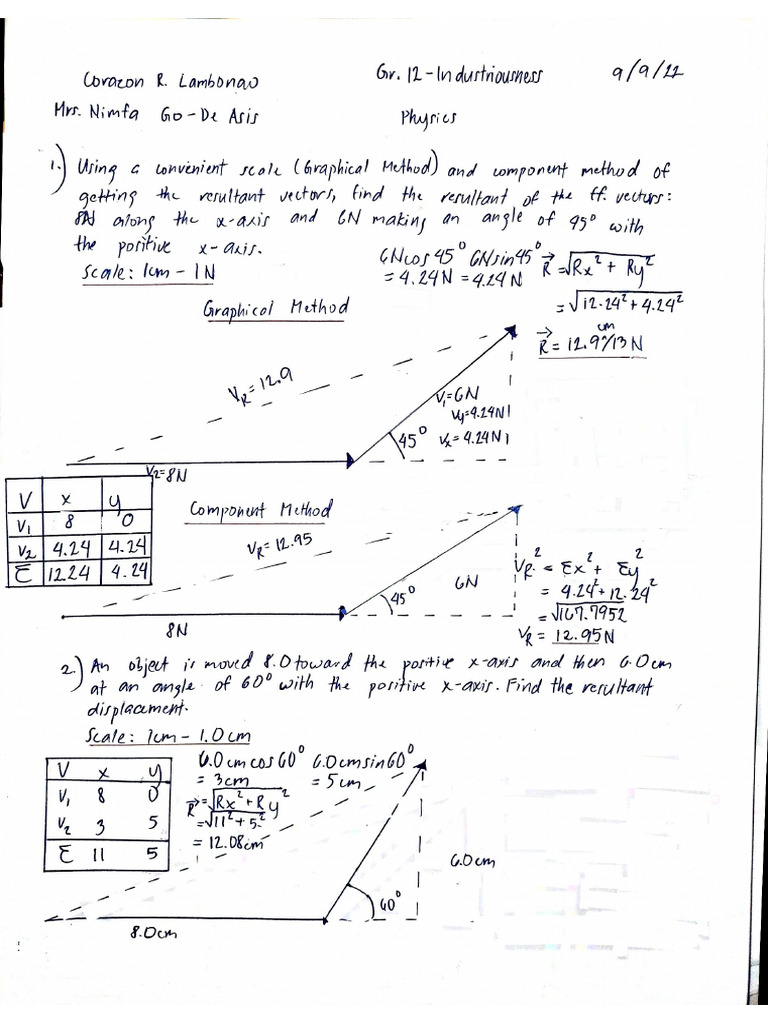 Corazon R. Lambonao
Gr. 12 - Industriousness
9/9/22
Mrs. Nimfa Go - De Asis
Physics
1.) Using a convenient scale (Graphical Method) and component method of
getting the resultant vectors, find the resultant of the ff. vectors:
8N along the x-axis and 6N making an angle of 45° with
the positive x-axis.
Scale: 1cm - 1N
6Ncos45° 6Nsin45°
= 4.24N = 4.24N
R = √Rx² + Ry²
= √12.24² + 4.24²
R = 12.9cm/13N
Graphical Method
VR = 12.9
V1 = 6N
Vy = 4.24N
Vx = 4.24N
45°
V2 = 8N
V x y
V1 8 0
V2 4.24 4.24
Σ 12.24 4.24
Component Method
VR = 12.95
45°
6N
8N
VR² = Σx² + Σy²
= 4.24² + 12.24²
= √167.7952
VR = 12.95N
2.) An object is moved 8.0 toward the positive x-axis and then 6.0cm
at an angle of 60° with the positive x-axis. Find the resultant
displacement.
Scale: 1cm - 1.0cm
V x y
V1 8 0
V2 3 5
Σ 11 5
6.0cmcos60° 6.0cmsin60°
= 3cm = 5cm
R = √Rx² + Ry²
= √11² + 5²
= 12.08cm
6.0cm
60°
8.0cm